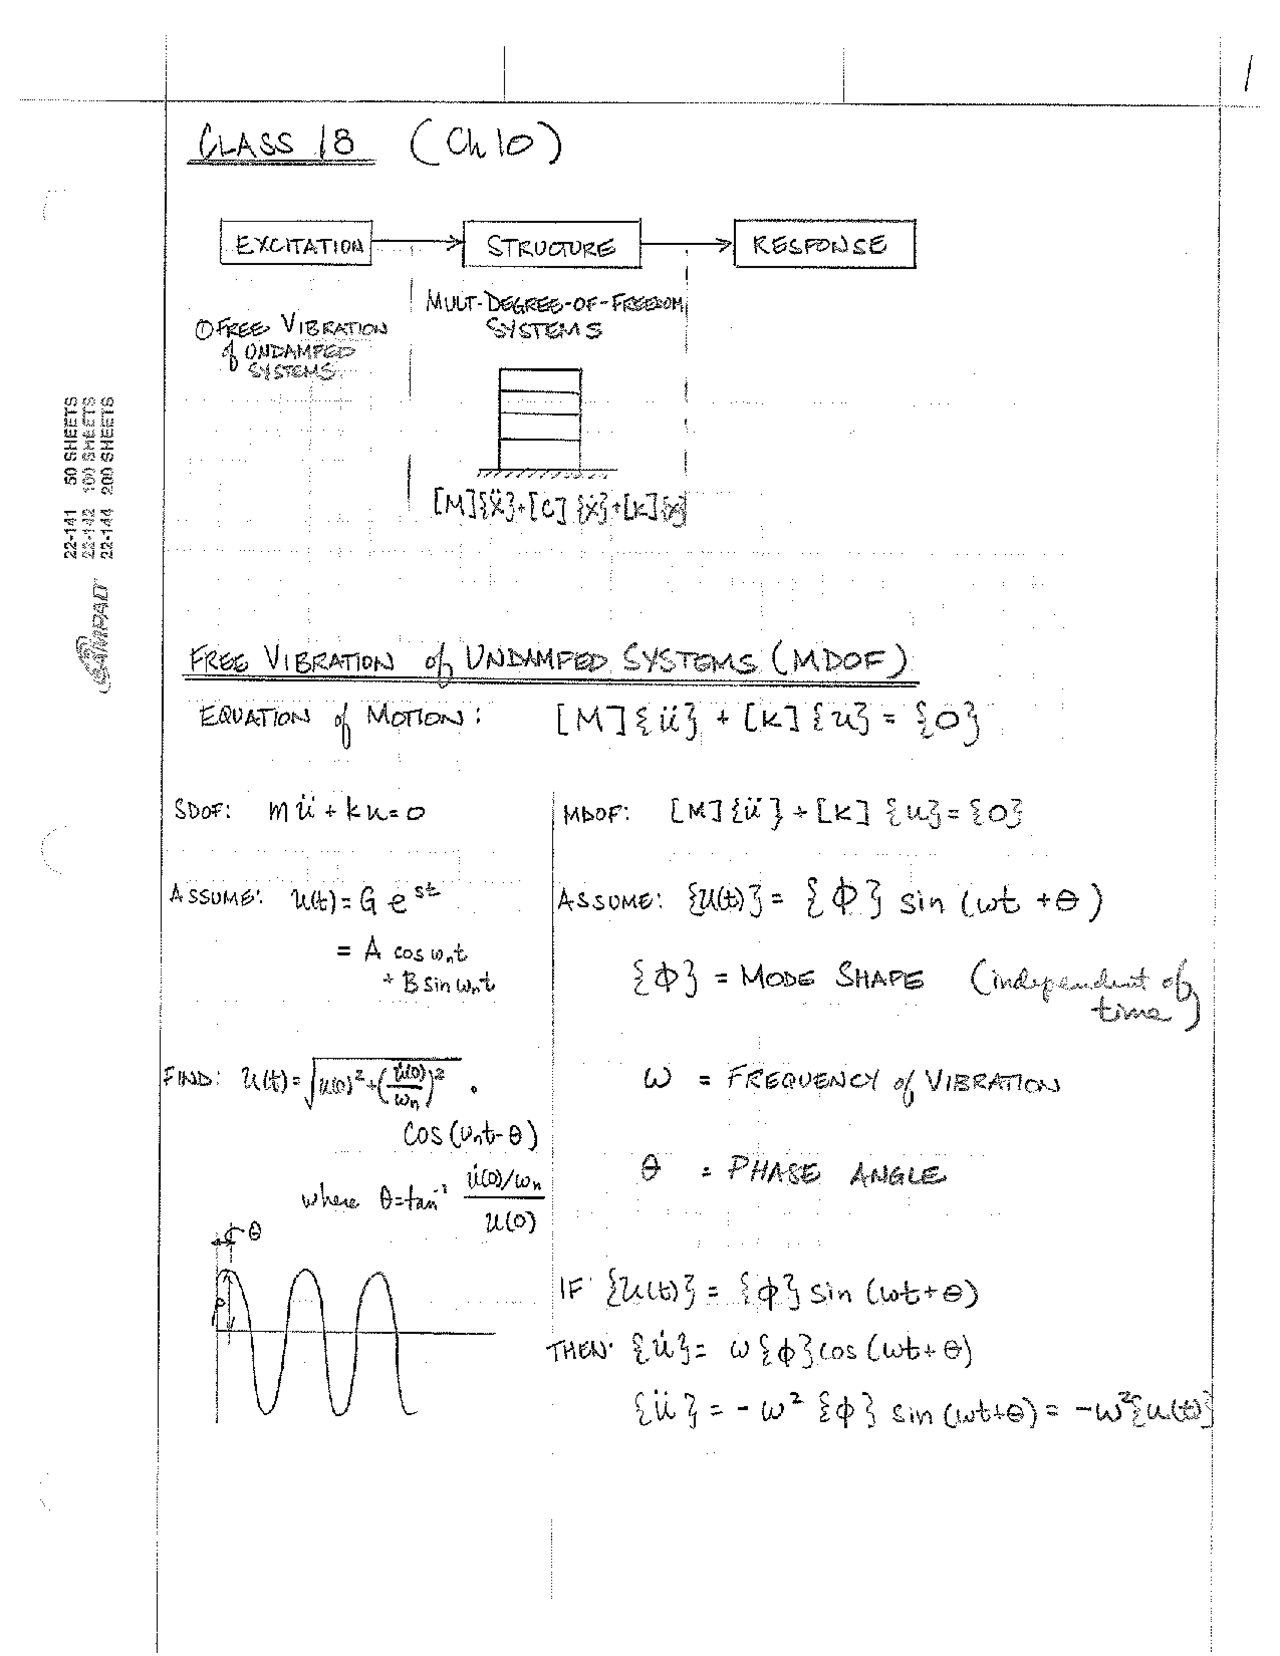 1
CLASS 18 (Ch 10)
EXCITATION
STRUCTURE
RESPONSE
① FREE VIBRATION
of UNDAMPED
SYSTEMS
MULT-DEGREE-OF-FREEDOM
SYSTEMS
[M]{ẍ}+[C]{ẋ}+[K]{x}
22-141 50 SHEETS
22-142 100 SHEETS
22-144 200 SHEETS
AMPAD
FREE VIBRATION of UNDAMPED SYSTEMS (MDOF)
EQUATION of MOTION: [M]{ü} + [K]{u} = {0}
SDOF: mü + ku = 0
ASSUME: u(t) = G e^st
= A cos ωₙt
+ B sin ωₙt
FIND: u(t) = √(u(0)² + (u̇(0)/ωₙ)²) ·
cos(ωₙt - θ)
where θ = tan⁻¹ (u̇(0)/ωₙ)/u(0)
θ
ρ
MDOF: [M]{ü} + [K]{u} = {0}
ASSUME: {u(t)} = {ϕ} sin (ωt + θ)
{ϕ} = MODE SHAPE (independent of
time)
ω = FREQUENCY of VIBRATION
θ = PHASE ANGLE
IF {u(t)} = {ϕ} sin (ωt + θ)
THEN: {u̇} = ω{ϕ} cos (ωt + θ)
{ü} = -ω² {ϕ} sin (ωt+θ) = -ω²{u(t)}